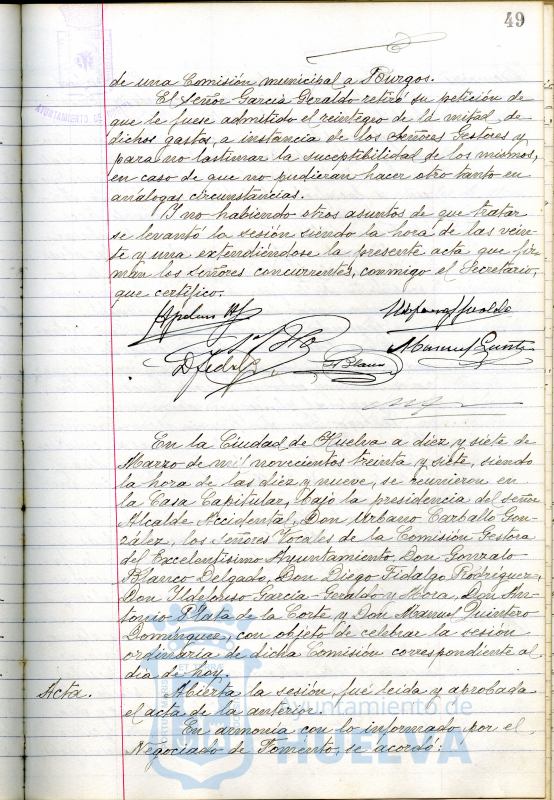 49
de una Comisión municipal a Burgos.
El Señor García Geraldo retiró su petición de
que le fuese admitido el reintegro de la mitad de
dichos gastos, a instancia de los Señores Gestores y
para no lastimar la suceptibilidad de los mismos,
en caso de que no pudieran hacer otro tanto en
análogas circunstancias.
Y no habiendo otros asuntos de que tratar
se levantó la sesión siendo la hora de las vein-
te y una extendiéndose la presente acta que fir-
man los señores concurrentes, conmigo el Secretario,
que certifico.
D Fidalgo
G Blanco
Manuel Quintero
En la Ciudad de Huelva a diez y siete de
Marzo de mil novecientos treinta y siete, siendo
la hora de las diez y nueve, se reunieron en
la Casa Capitular, bajo la presidencia del señor
Alcalde Accidental, Don Urbano Carballo Gon-
zález, los señores Vocales de la Comisión Gestora
del Excelentísimo Ayuntamiento, Don Gonzalo
Blanco Delgado, Don Diego Fidalgo Rodríguez,
Don Ildefonso García-Geraldo y Mora, Don An-
tonio Plata de la Corte y Don Manuel Quintero
Domínguez, con objeto de celebrar la sesión
ordinaria de dicha Comisión correspondiente al
día de hoy.
Acta.
Abierta la sesión, fué leída y aprobada
el acta de la anterior.
En armonía con lo informado por el
Negociado de Fomento, se acordó:
AYUNTAMIENTO DE
Ayuntamiento de
HUELVA